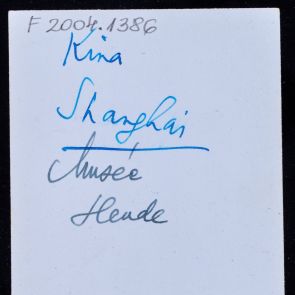 F 2004.1386
Kina
Shanghai
Musée
Heude